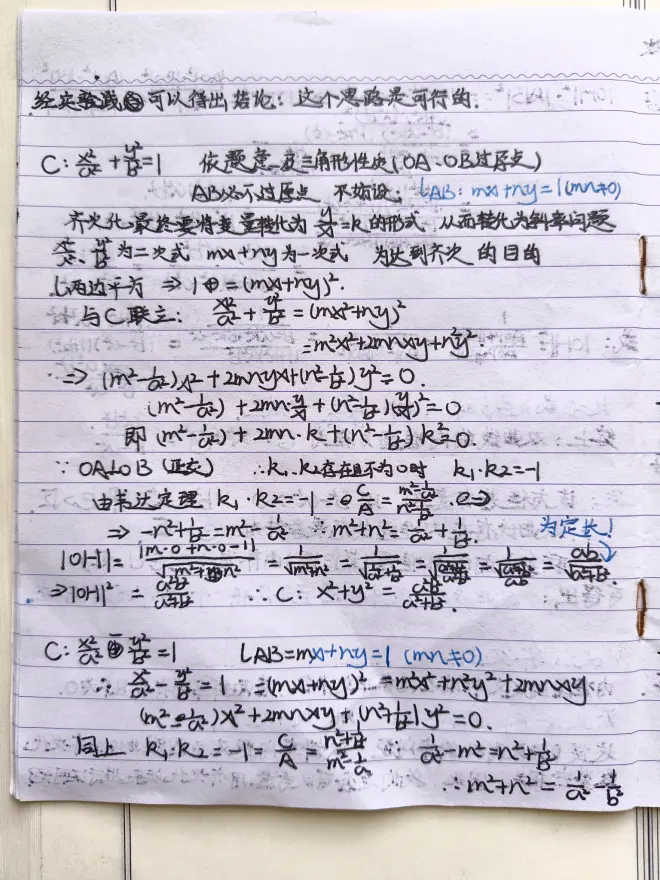 经实验我可以得出结论：这个思路是可行的.
C: x²/a² + y²/b² = 1 依题意及三角形性质(OA、OB过原点)
AB必不过原点 不妨设: l AB: mx+ny=1(mn≠0)
齐次化最终要将变量转化为 y/x=k 的形式. 从而转化为斜率问题
x²/a²、y²/b² 为二次式 mx+ny为一次式 为达到齐次的目的
l两边平方 ⇒ 1 = (mx+ny)².
与C联立: x²/a² + y²/b² = (mx+ny)²
=m²x²+2mnxy+n²y²
⇒ (m²-1/a²)x²+2mnyx+(n²-1/b²)y²=0.
(m²-1/a²) + 2mn·y/x + (n²-1/b²)(y/x)²=0
即 (m²-1/a²) + 2mn·k + (n²-1/b²)k²=0.
∵ OA⊥OB (正交) ∴k₁、k₂存在且不为0时 k₁·k₂=-1
由韦达定理 k₁·k₂=-1 = C/A = (m²-1/a²)/(n²-1/b²)
⇒ -n²+1/b²=m²-1/a² ∴ m²+n²=1/a²+1/b². 为定长!
|OH|= |m·0+n·0-1|/√(m²+n²) = 1/√(m²+n²) = 1/√(1/a²+1/b²) = = = ab/√(a²+b²).
⇒|OH|² = a²b²/(a²+b²) ∴ C: x²+y² = a²b²/(a²+b²).
C: x²/a² - y²/b² = 1 l AB=mx+ny=1 (mn≠0)
∴ x²/a² - y²/b² = 1 =(mx+ny)² =m²x²+n²y²+2mnxy
(m²-1/a²)x²+2mnxy+(n²+1/b²)y²=0.
同上 k₁·k₂=-1= C/A = (n²+1/b²)/(m²-1/a²) ∴ 1/a²-m²=n²+1/b²
∴m²+n² = 1/a² - 1/b²